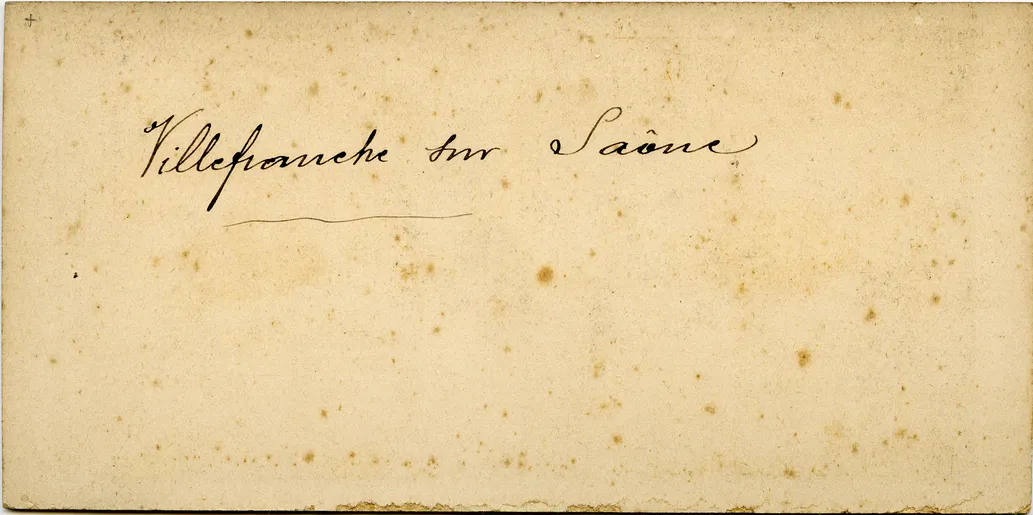 Villefranche sur Saône